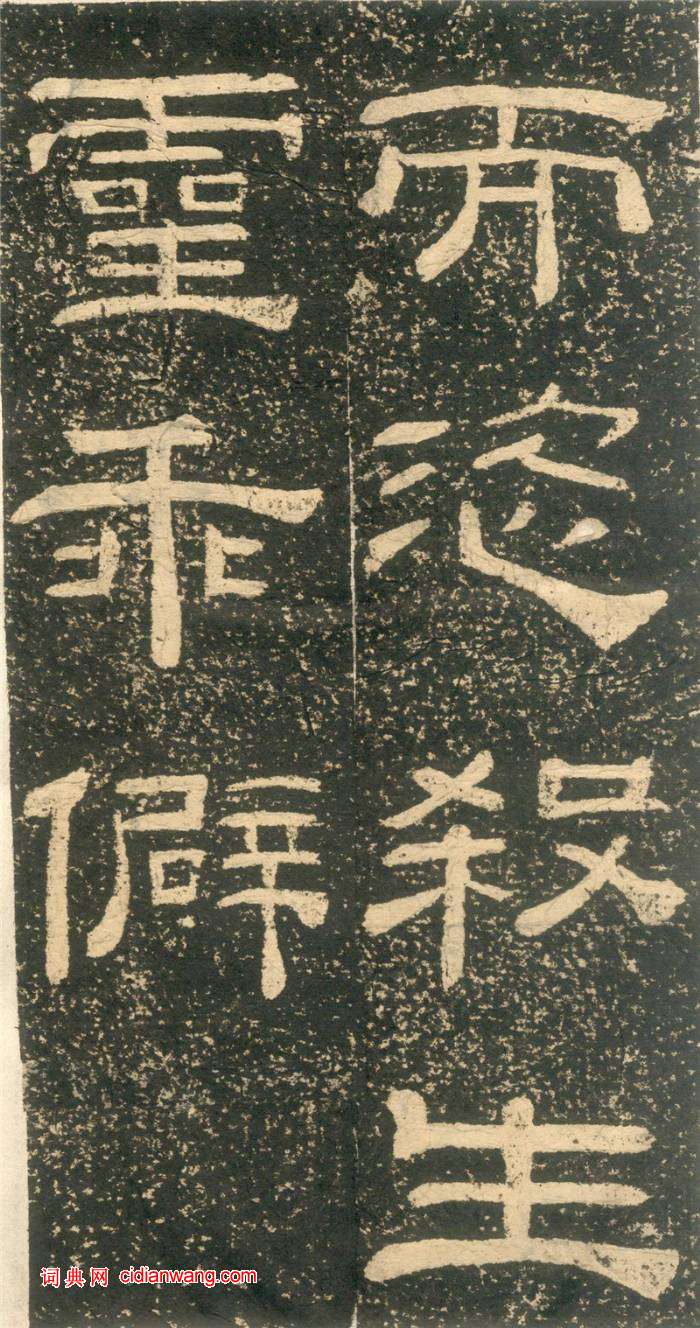 而恣殺生
靈乖僻
词典网 cidianwang.com